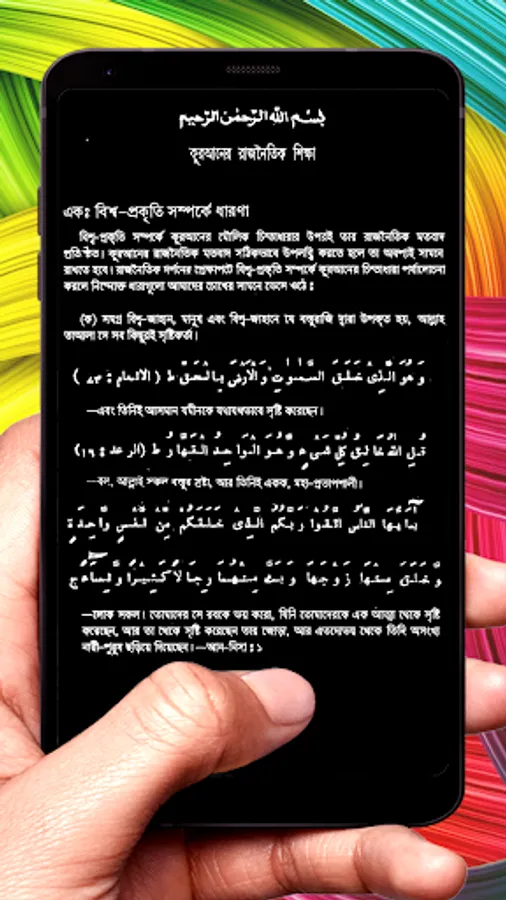 بِسْمِ اللهِ الرَّحْمٰنِ الرَّحِيْمِ
কুরআনের রাজনৈতিক শিক্ষা
এক: বিশ্ব-প্রকৃতি সম্পর্কে ধারণা
বিশ্ব-প্রকৃতি সম্পর্কে কুরআনের মৌলিক চিন্তাধারার উপরই তার রাজনৈতিক মতবাদ
প্রতিষ্ঠিত। কুরআনের রাজনৈতিক মতবাদ সঠিকভাবে উপলব্ধি করতে হলে তা অবশ্যই সামনে
রাখতে হবে। রাজনৈতিক দর্শনের প্রেক্ষাপটে বিশ্ব-প্রকৃতি সম্পর্কে কুরআনের চিন্তাধারা পর্যালোচনা
করলে নিম্নোক্ত ধারাগুলো আমাদের চোখের সামনে ভেসে ওঠে :
(ক) সমগ্র বিশ্ব-জাহান, মানুষ এবং বিশ্ব-জাহানে যে বস্তুরাজি দ্বারা উপকৃত হয়, আল্লাহ
তাআলা সে সব কিছুরই সৃষ্টিকর্তা।
وَهُوَ الَّذِىْ خَلَقَ السَّمٰوٰتِ وَالْاَرْضَ بِالْحَقِّ ط ( الانعام : ٧٣ )
—এবং তিনিই আসমান যমীনকে যথাযথভাবে সৃষ্টি করেছেন।
قُلِ اللهُ خَالِقُ كُلِّ شَىْءٍ وَّهُوَ الْوَاحِدُ الْقَهَّارُ ط (الرعد : ١٦)
—বল, আল্লাহই সকল বস্তুর স্রষ্টা, আর তিনিই একক, মহা-প্রতাপশালী।
يٰاَيُّهَا النَّاسُ اتَّقُوْا رَبَّكُمُ الَّذِىْ خَلَقَكُمْ مِّنْ نَّفْسٍ وَّاحِدَةٍ
وَّخَلَقَ مِنْهَا زَوْجَهَا وَبَثَّ مِنْهُمَا رِجَالًا كَثِيْرًا وَّنِسَاءً ج
—লোক সকল। তোমাদের সে রবকে ভয় করো, যিনি তোমাদেরকে এক আত্মা থেকে সৃষ্টি
করেছেন, আর তা থেকে সৃষ্টি করেছেন তার জোড়া, আর এতদোভয় থেকে তিনি অসংখ্য
নারী-পুরুষ ছড়িয়ে দিয়েছেন।—আন-নিসা : ১